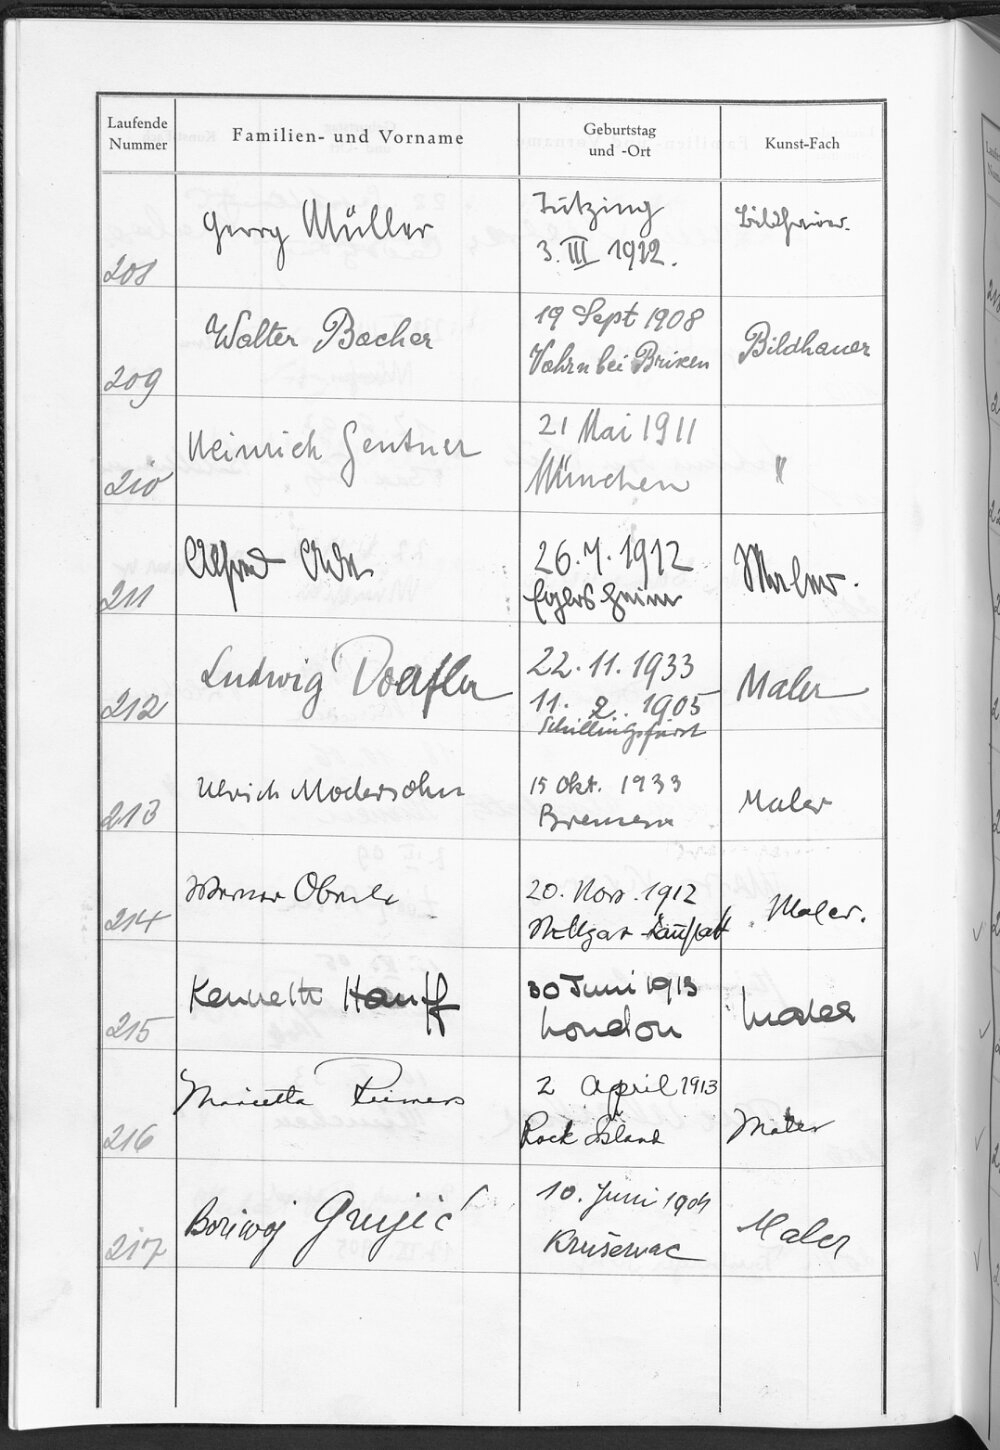 Laufende Nummer
Familien- und Vorname
Geburtstag und -Ort
Kunst-Fach
208
Georg Müller
Tutzing
3. III 1912.
Bildhauer.
209
Walter Bacher
19 Sept 1908
Vahrn bei Brixen
Bildhauer
210
Heinrich Gentner
21 Mai 1911
München
"
211
Alfred
26.7.1912
Maler.
212
Ludwig Doerfler
22.11.1933
11. 2. 1905
Schillingsfürst
Maler
213
Ulrich Modersohn
15 Okt. 1933
Bremen
Maler
214
Werner Oberle
20. Nov. 1912
Stuttgart Cannstatt
Maler.
215
Kenneth Hauff
30 Juni 1913
London
Maler
216
Marietta Reimers
2 April 1913
Rock Island
Maler
217
Boriwoj Grujić
10. Juni 1904
Kruševac
Maler